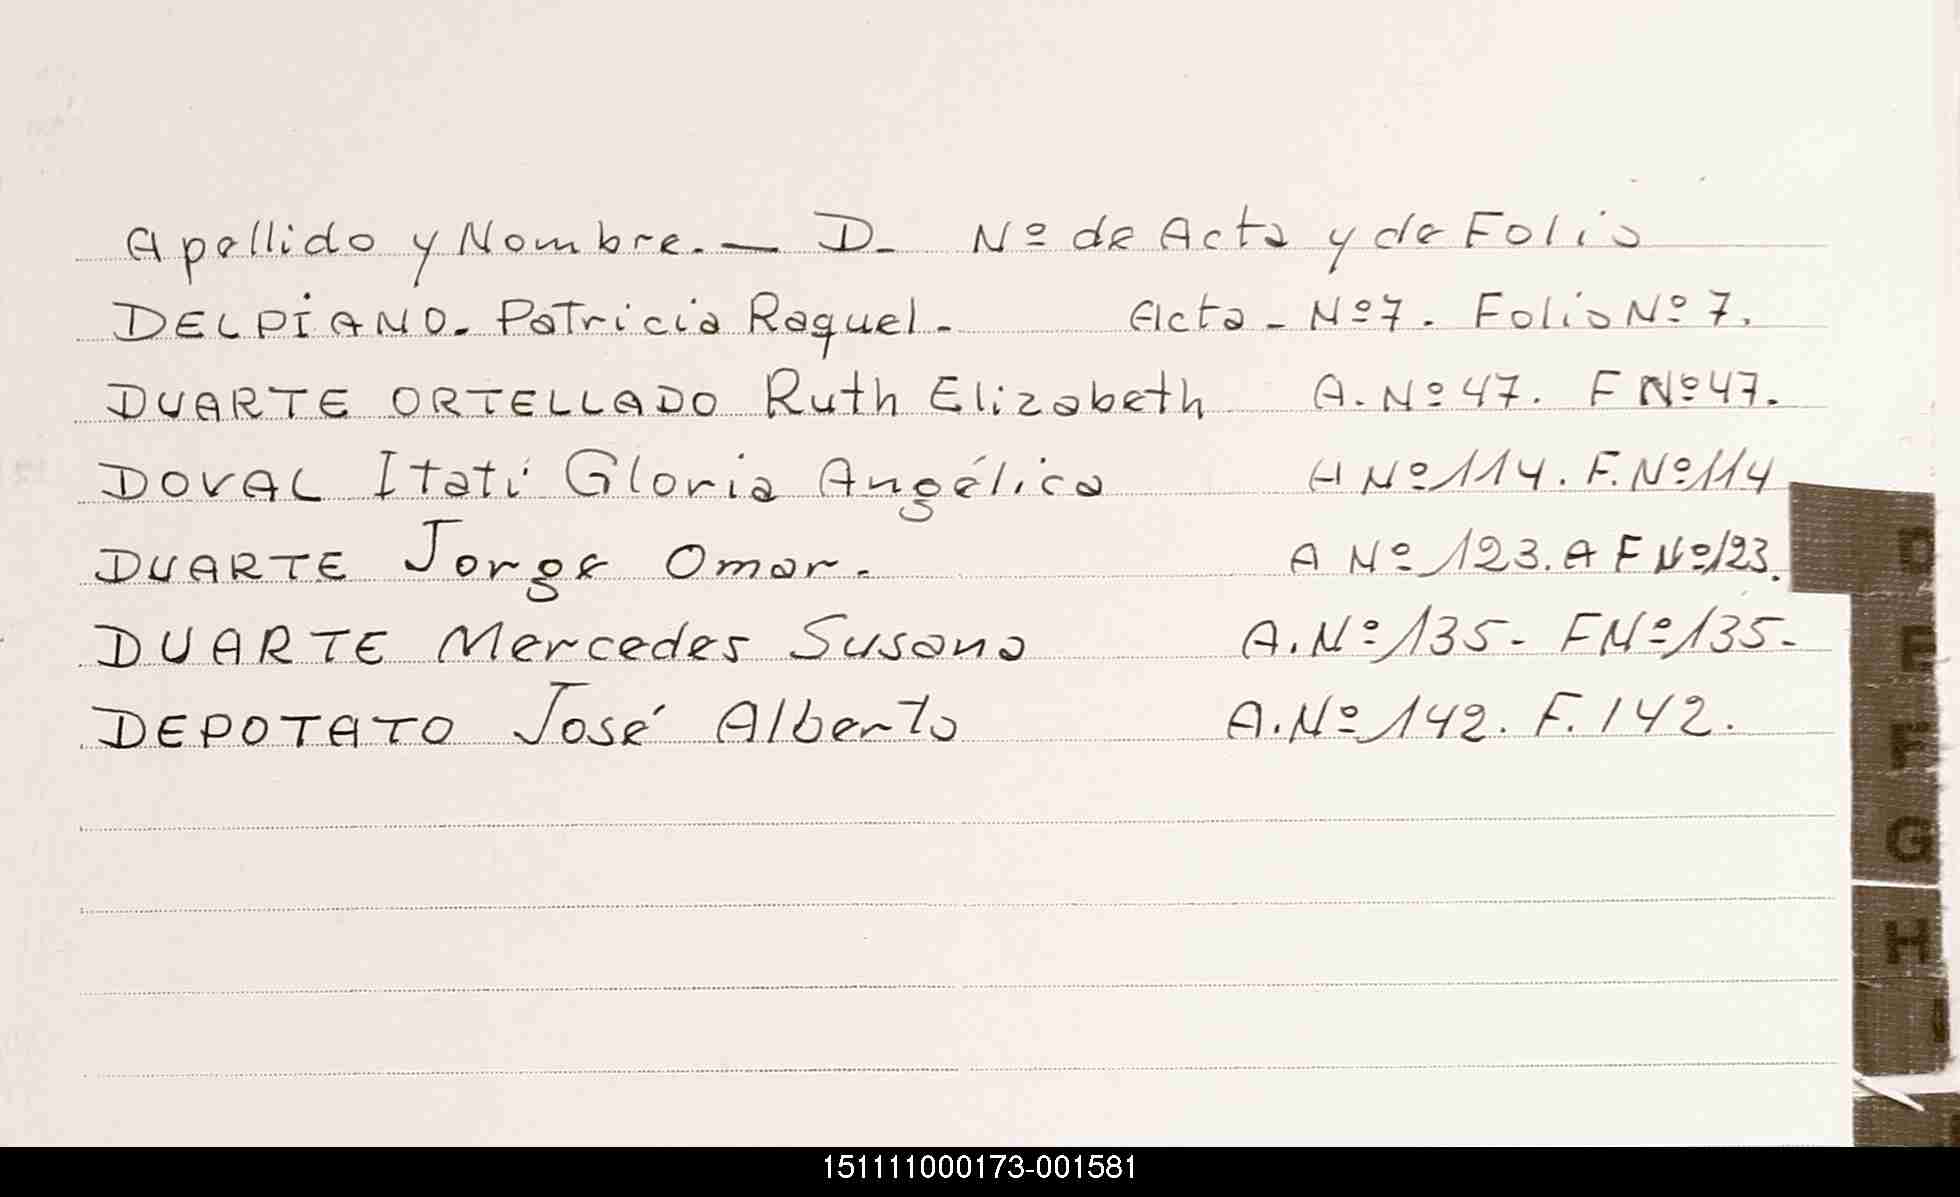 Apellido y Nombre. — D. Nº de Acta y de Folio
DELPIANO. Patricia Raquel. Acta - Nº 7. Folio Nº 7.
DUARTE ORTELLADO Ruth Elizabeth A. Nº 47. F Nº 47.
DOVAL Itatí Gloria Angélica A Nº 114. F. Nº 114
DUARTE Jorge Omar. A Nº 123. A F Nº 123.
DUARTE Mercedes Susana A. Nº 135 - F Nº 135 -
DEPOTATO José Alberto A. Nº 142. F. 142.
D
E
F
G
H
I
151111000173-001581